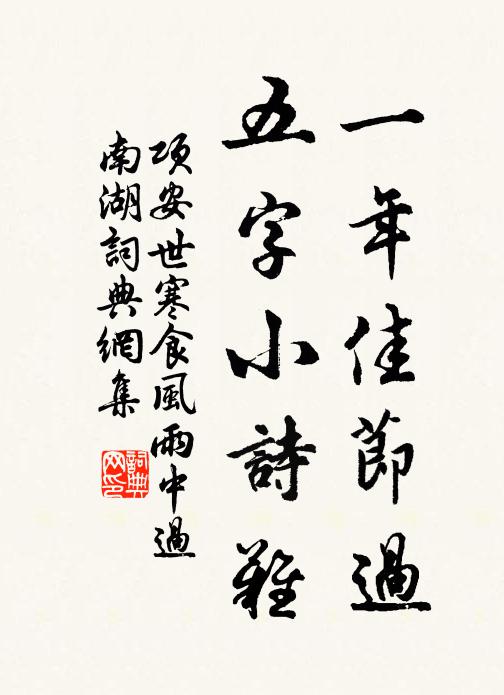 一年佳節過
五字小詩難
項安世寒食風雨中過
南湖詞典網集
詞典网印